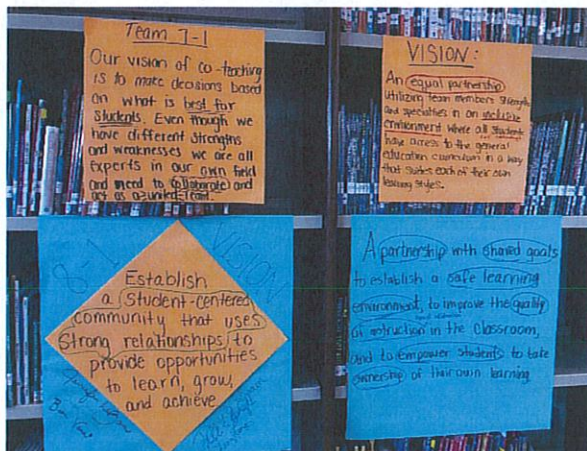 Team 7-1
Our vision of co-teaching
is to make decisions based
on what is best for
students. Even though we
have different strengths
and weaknesses we are all
experts in our own field
and need to collaborate and
act as a united team.
VISION:
An equal partnership
utilizing team members strengths
and specialties in an inclusive
environment where all students
have access to the general
education curriculum in a way
that suites each of their own
learning styles.
8-1 VISION
Establish
a student-centered
community that uses
strong relationships to
provide opportunities
to learn, grow,
and achieve
A partnership with shared goals
to establish a safe learning
environment, to improve the quality
of instruction in the classroom,
and to empower students to take
ownership of their own learning